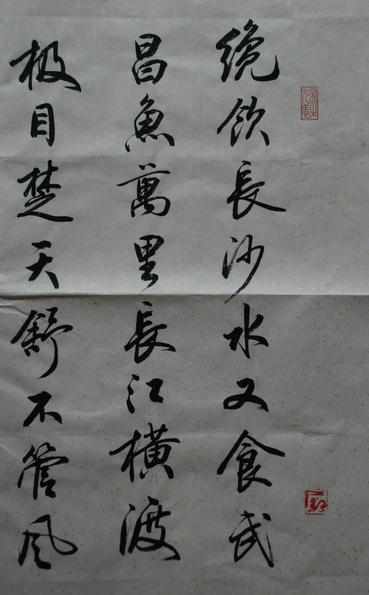 纔飲長沙水又食武
昌魚萬里長江橫渡
极目楚天舒不管風